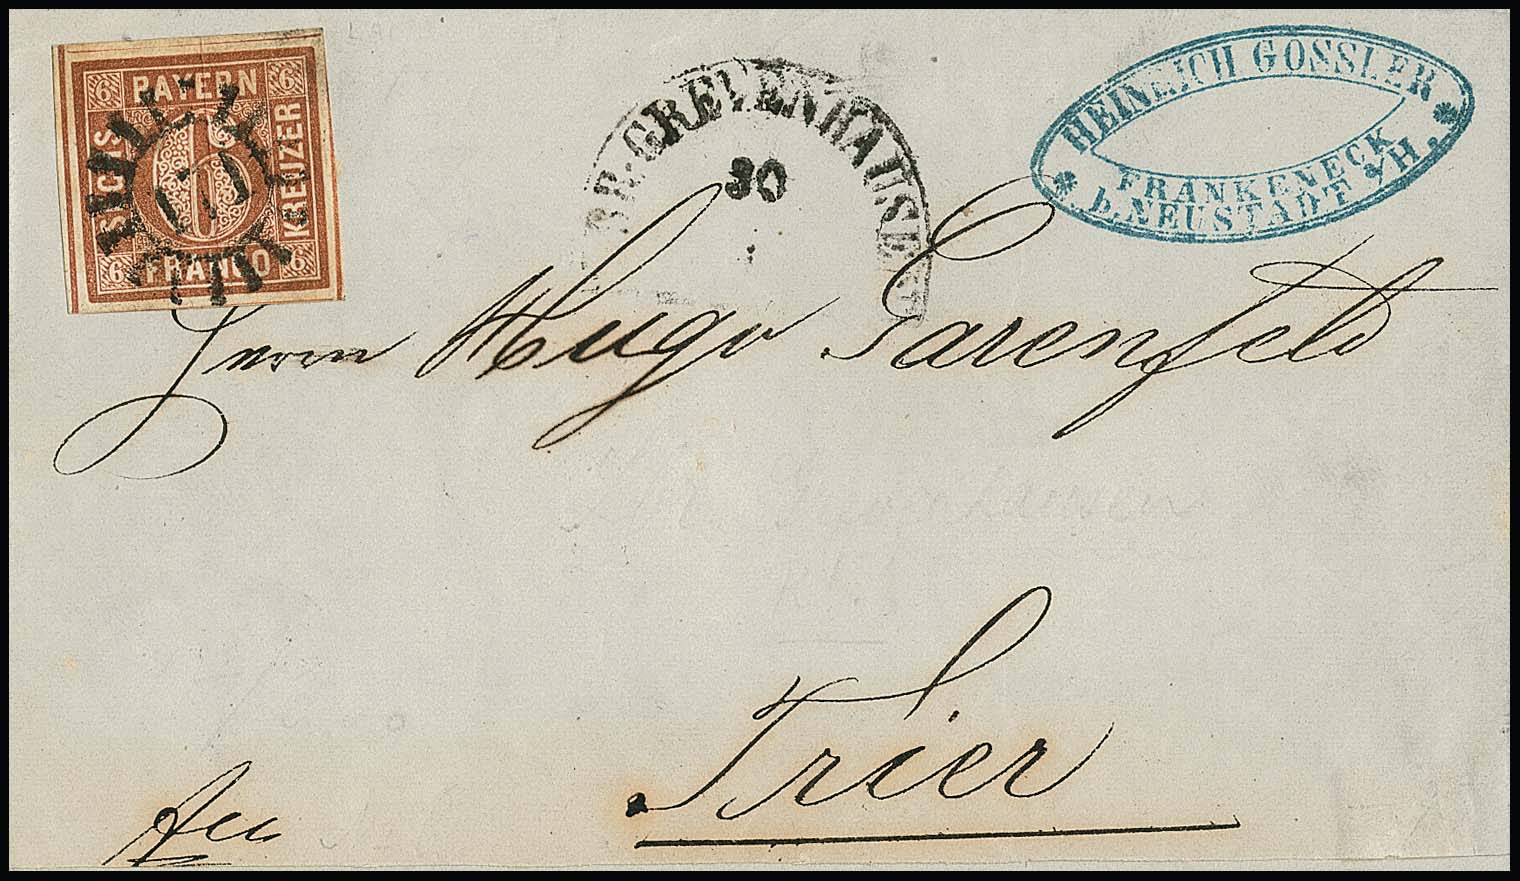 6 BAYERN 6
SECHS
KREUZER
6 FRANCO 6
GR: GREVENHAUSEN
30
HEINRICH GOSSLER
FRANKENECK
b. NEUSTADT a/H.
Herrn Hugo Garenfeld
Trier